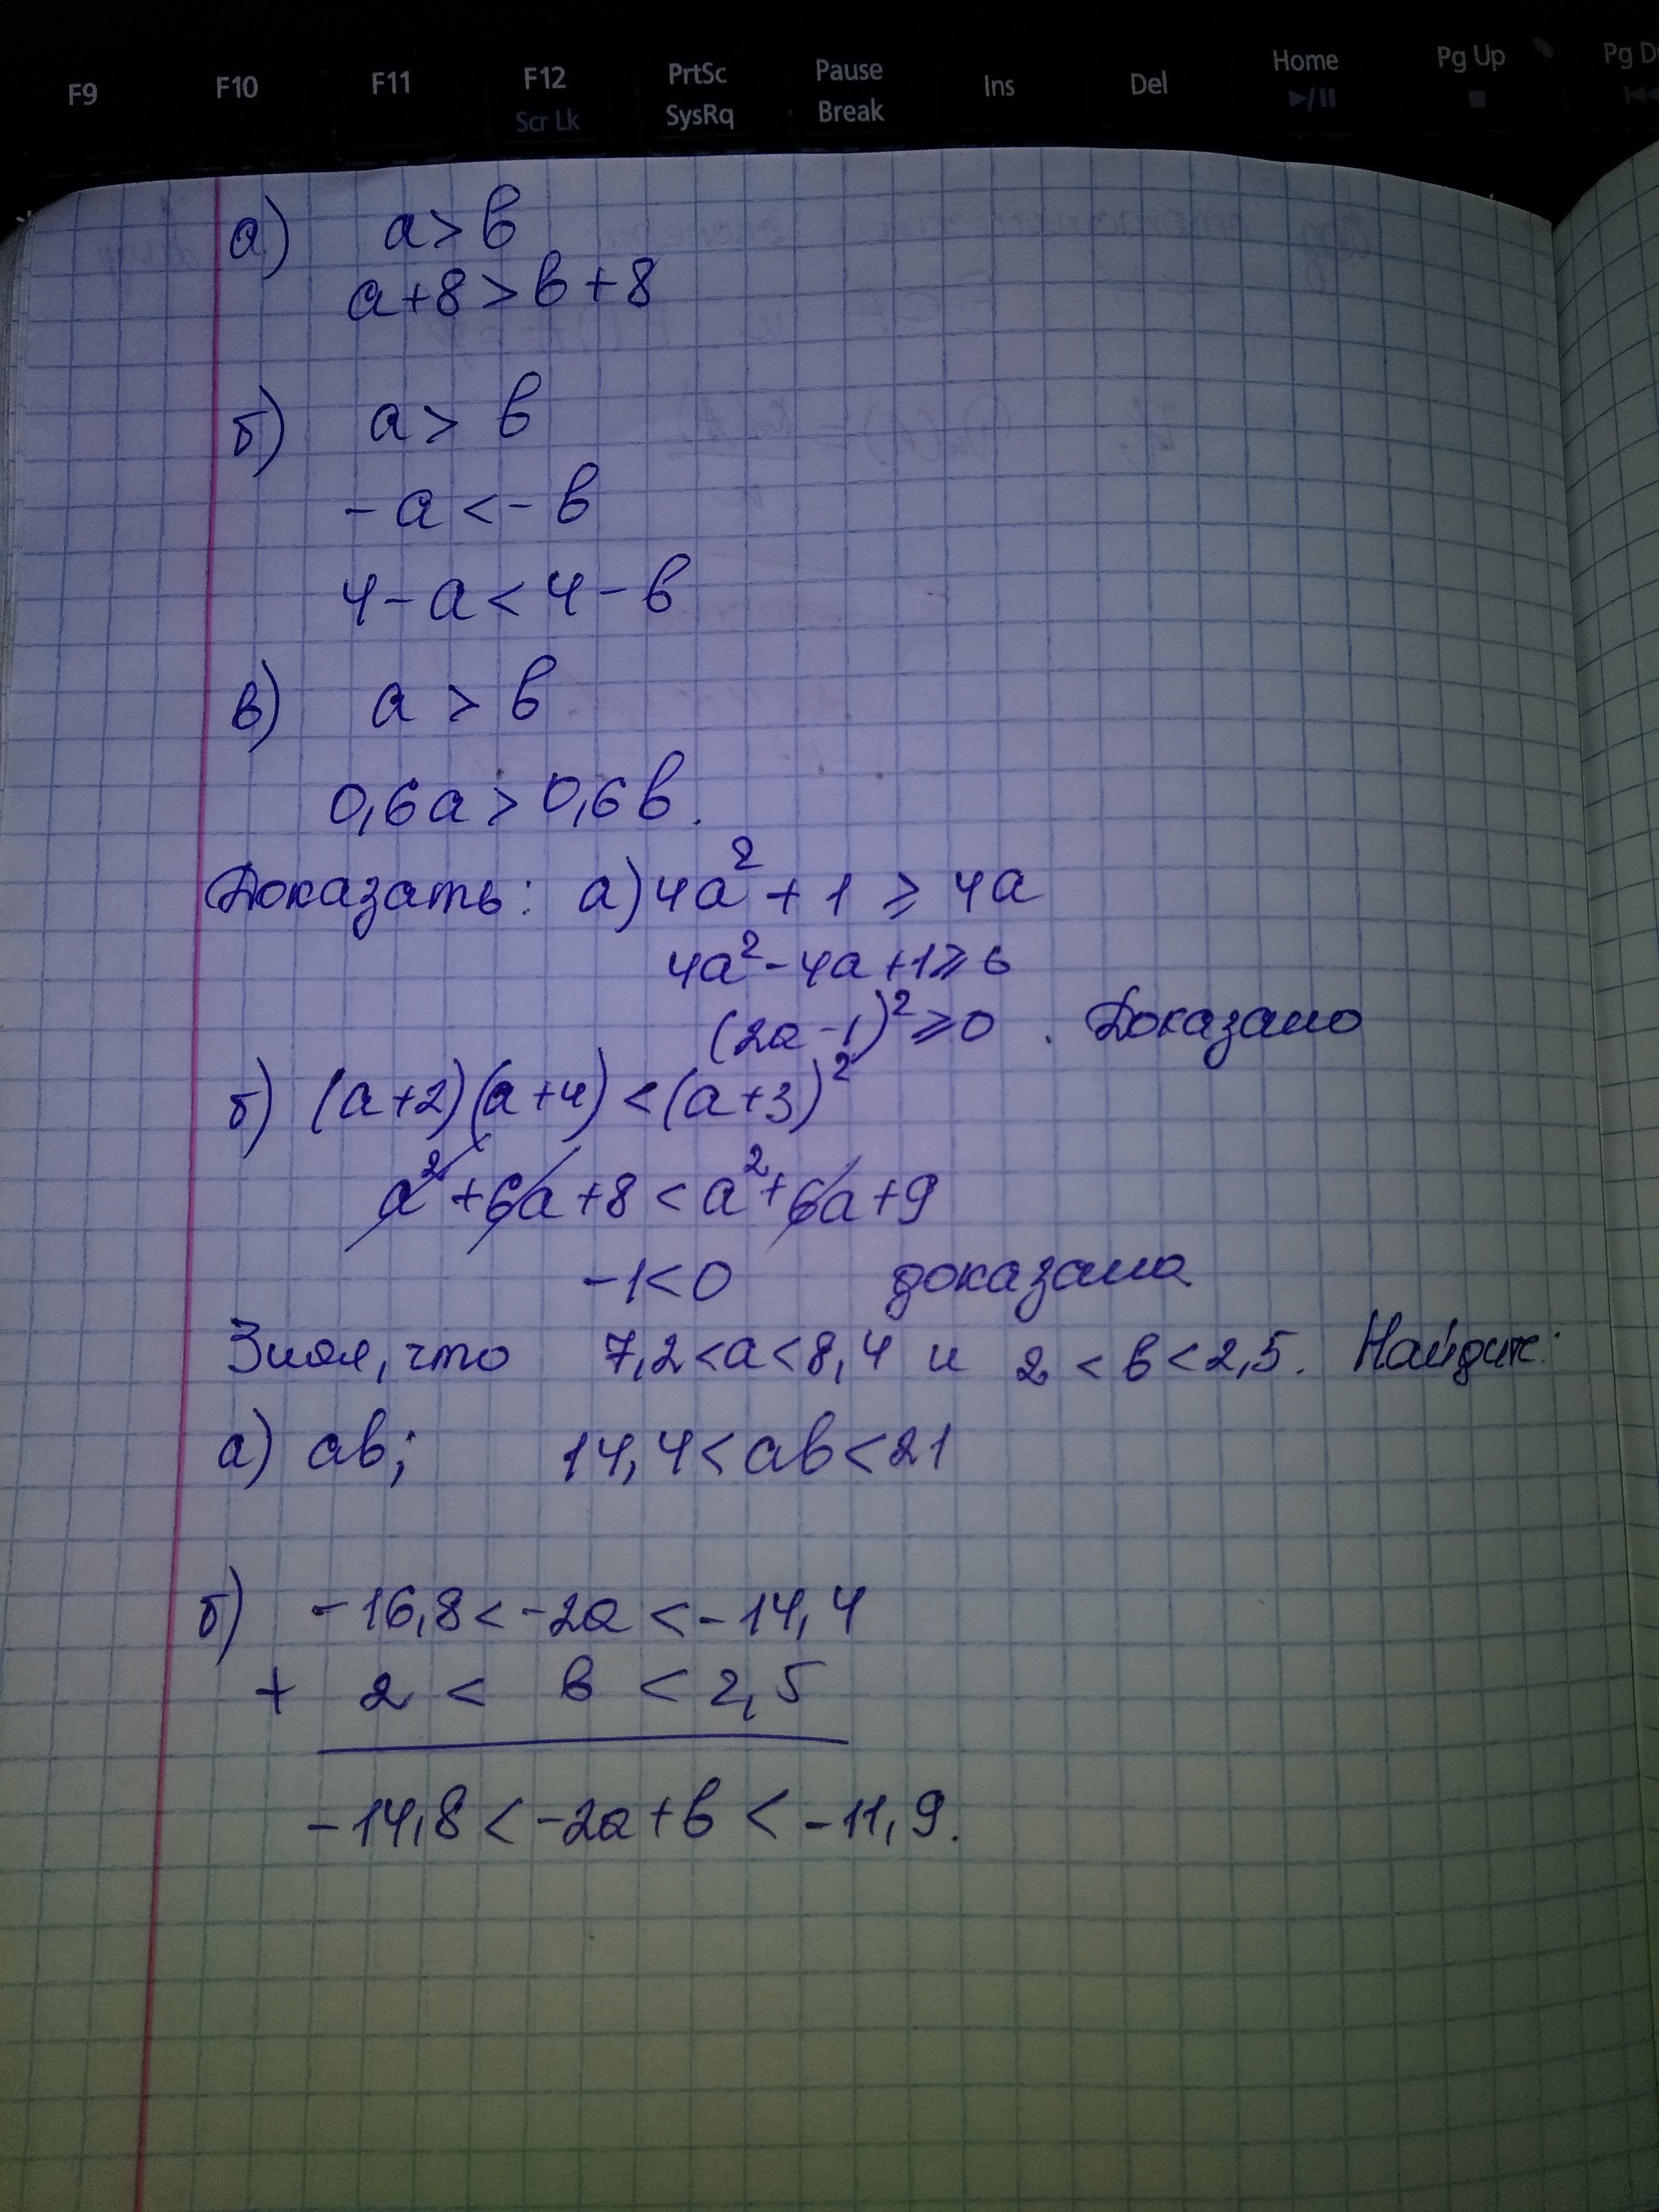 F9 F10 F11 F12 PrtSc Pause Ins Del Home Pg Up Pg D
Scr Lk SysRq Break
а) a > b
a+8 > b+8
б) a > b
-a < -b
4-a < 4-b
в) a > b
0,6a > 0,6b.
Доказать: а) 4a² + 1 ⩾ 4a
4a² - 4a + 1 ⩾ 0
(2a - 1)² ⩾ 0. Доказано
б) (a+2)(a+4) < (a+3)²
a² + 6a + 8 < a² + 6a + 9
-1 < 0 доказано
Зная, что 7,2 < a < 8,4 и 2 < b < 2,5. Найдите:
а) ab; 14,4 < ab < 21
б) -16,8 < -2a < -14,4
+ 2 < b < 2,5
-14,8 < -2a + b < -11,9.